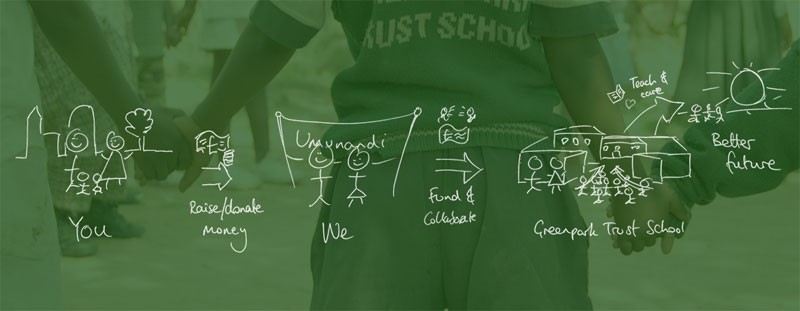 TRUST SCHOOL
You
£
Raise/donate
money
Umunandi
We
£
Fund &
Collaborate
Greenpark Trust School
Teach &
care
Better
future